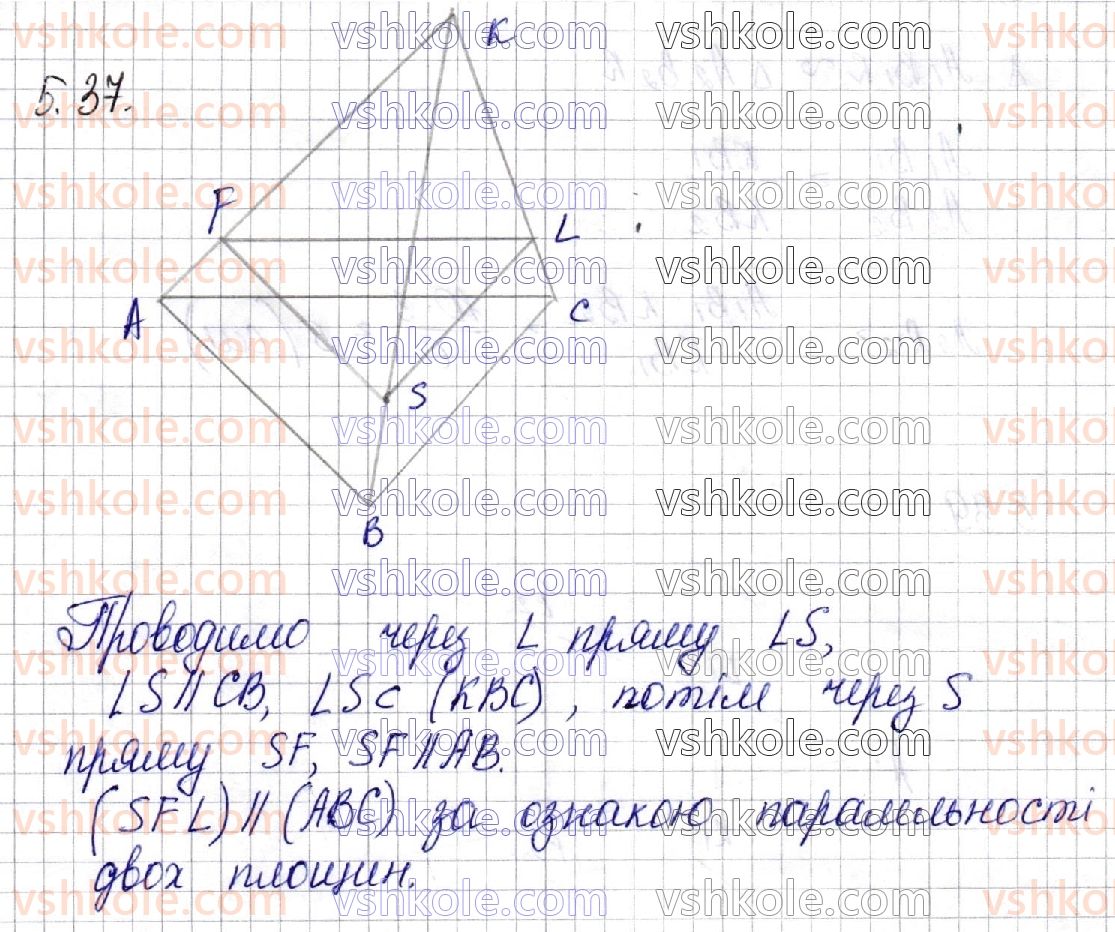 5.37.
K
F
L
A
C
S
B
Проводимо через L пряму LS,
LS∥CB, LS⊂(KBC), потім через S
пряму SF, SF∥AB.
(SFL)∥(ABC) за ознакою паралельності
двох площин.
vshkole.com